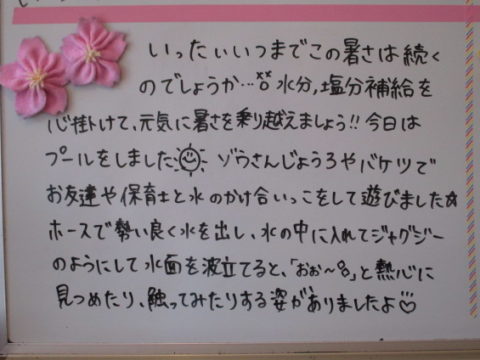 いったいいつまでこの暑さは続く
のでしょうか…水分,塩分補給を
心掛けて、元気に暑さを乗り越えましょう!!今日は
プールをしました ゾウさんじょうろやバケツで
お友達や保育士と水のかけ合いっこをして遊びました☆
ホースで勢い良く水を出し、水の中に入れてジャグジー
のようにして水面を波立てると、「おぉ〜」と熱心に
見つめたり、触ってみたりする姿がありましたよ♡